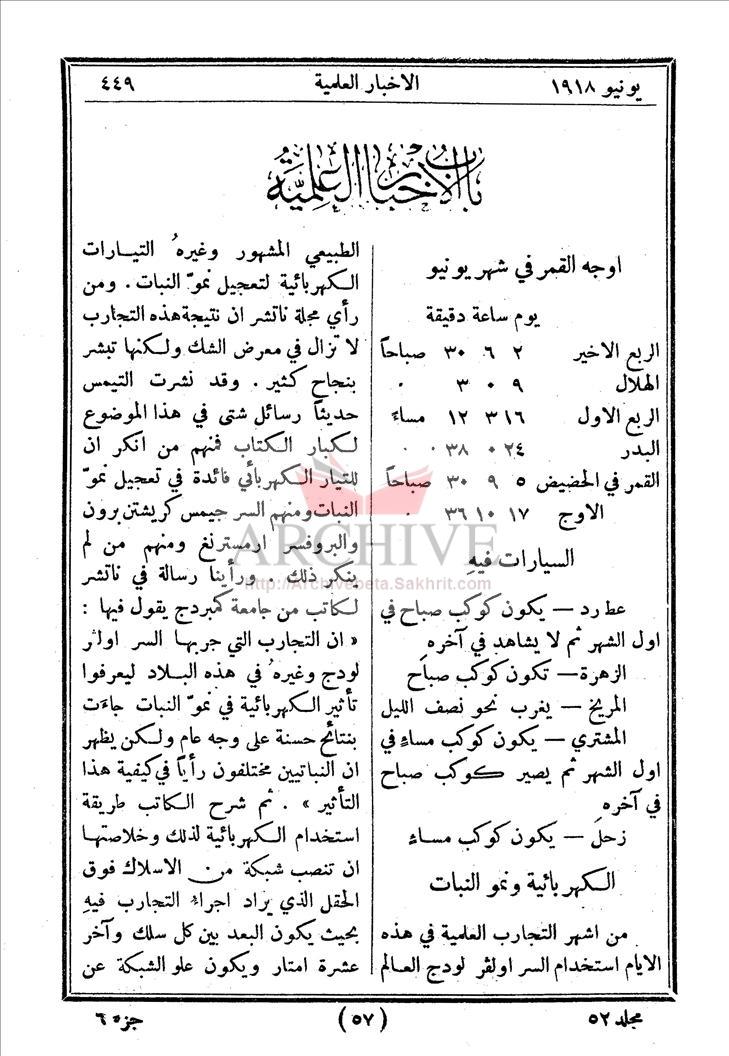 يونيو ١٩١٨
الاخبار العلمية
٤٤٩
باب الاخبار العلمية
اوجه القمر في شهر يونيو
يوم ساعة دقيقة
الربع الاخير ٢ ٦ ٣٠ صباحاً
الهلال ٩ ٠ ٣ ٠
الربع الاول ١٦ ٣ ١٢ مساءً
البدر ٢٤ ٠ ٣٨ ٠ ٠
القمر في الحضيض ٥ ٩ ٣٠ صباحاً
الاوج ١٧ ١٠ ٣٦ ٠
السيارات فيهِ
عطارد — يكون كوكب صباح في
اول الشهر ثم لا يشاهد في آخره
الزهرة — تكون كوكب صباح
المريخ — يغرب نحو نصف الليل
المشتري — يكون كوكب مساءٍ في
اول الشهر ثم يصير كوكب صباح
في آخره
زحل — يكون كوكب مساء
الكهربائية ونمو النبات
من اشهر التجارب العلمية في هذه
الايام استخدام السر اولڤر لودج العالم
الطبيعي المشهور وغيرهُ التيارات
الكهربائية لتعجيل نموّ النبات. ومن
رأي مجلة ناتشر ان نتيجة هذه التجارب
لا تزال في معرض الشك ولكنها تبشر
بنجاح كثير. وقد نشرت التيمس
حديثاً رسائل شتى في هذا الموضوع
لكبار الكتاب فمنهم من انكر ان
للتيار الكهربائي فائدة في تعجيل نموّ
النبات ومنهم السر جيمس كريشتن برون
والبروفسر ارمسترنغ ومنهم من لم
ينكر ذلك. ورأينا رسالة في ناتشر
لكاتب من جامعة كمبردج يقول فيها:
«ان التجارب التي جربها السر اولڤر
لودج وغيرهُ في هذه البلاد ليعرفوا
تأثير الكهربائية في نموّ النبات جاءت
بنتائج حسنة على وجه عام ولكن يظهر
ان النباتيين مختلفون رأياً في كيفية هذا
التأثير». ثم شرح الكاتب طريقة
استخدام الكهربائية لذلك وخلاصتها
ان تنصب شبكة من الاسلاك فوق
الحقل الذي يراد اجراء التجارب فيهِ
بحيث يكون البعد بين كل سلك وآخر
عشرة امتار ويكون علو الشبكة عن
مجلد ٥٢
(٥٧)
جزء ٦
ARCHIVE
http://Archivebeta.Sakhrit.com